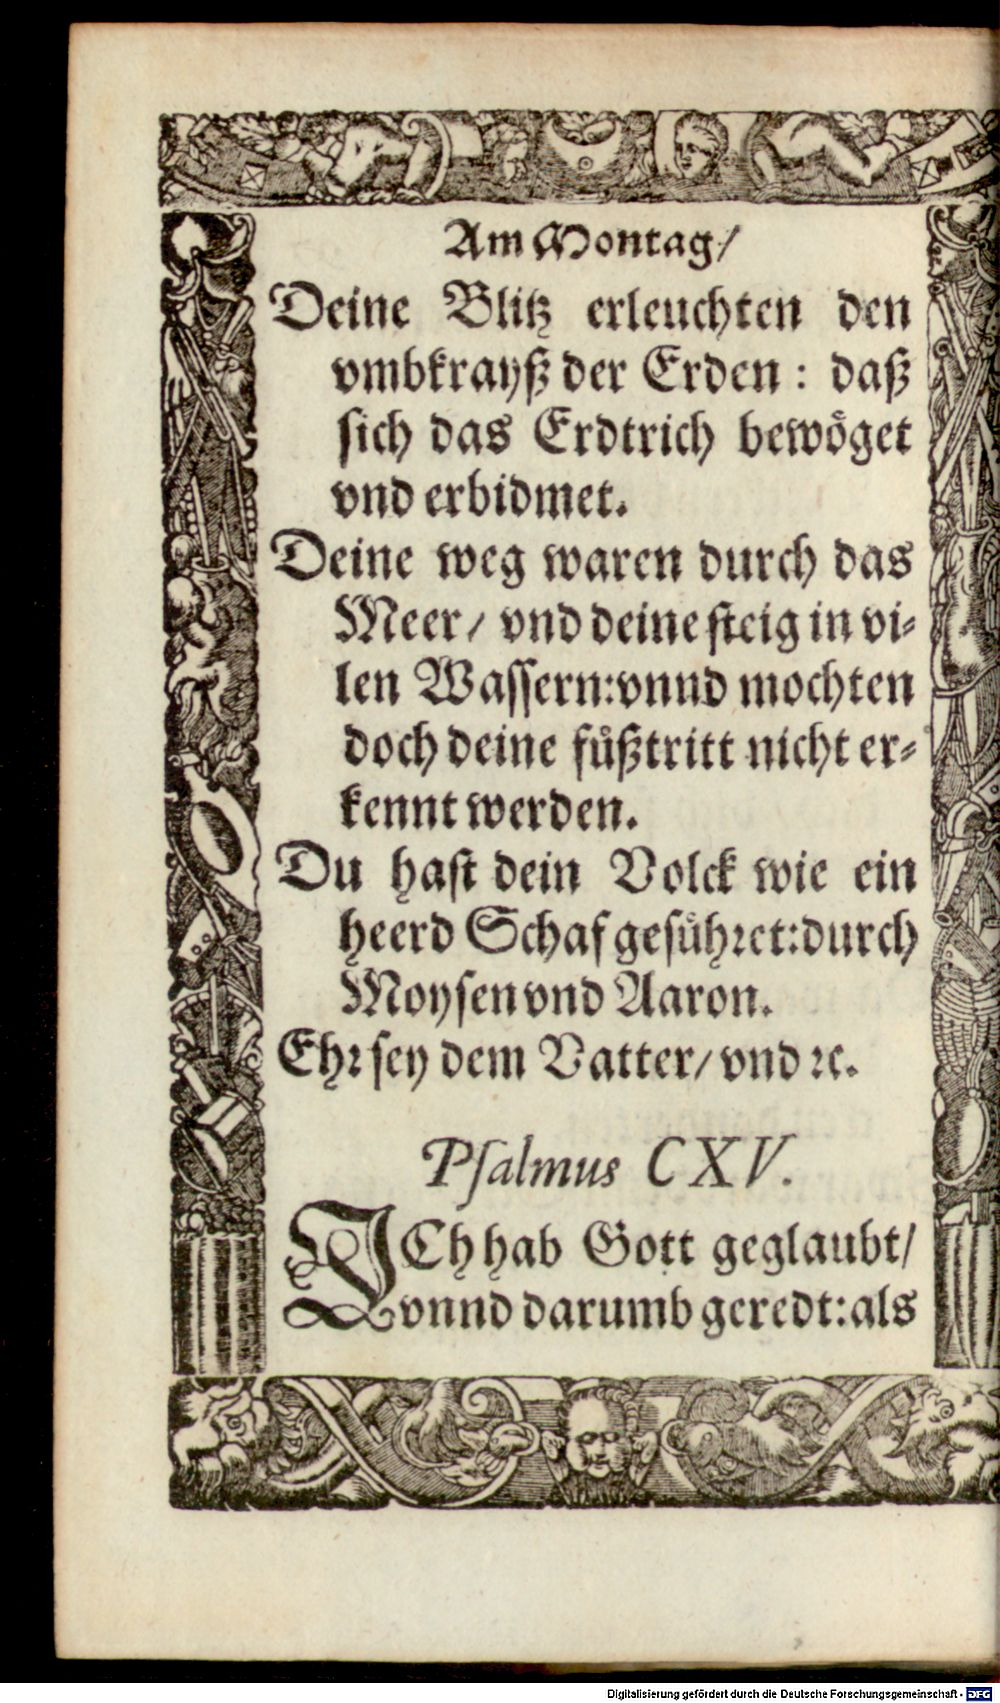 Am Montag/
Deine Blitz erleuchten den
vmbkrayß der Erden : daß
sich das Erdtrich bewöget
vnd erbidmet.
Deine weg waren durch das
Meer/ vnd deine steig in vi-
len Wassern:vnnd mochten
doch deine fůßtritt nicht er-
kennt werden.
Du hast dein Volck wie ein
heerd Schaf gefůhꝛet:durch
Moysen vnd Aaron.
Ehꝛ sey dem Vatter/ vnd ꝛc.
Psalmus CXV.
ICh hab Gott geglaubt/
vnnd darumb geredt:als
Digitalisierung gefördert durch die Deutsche Forschungsgemeinschaft - DFG